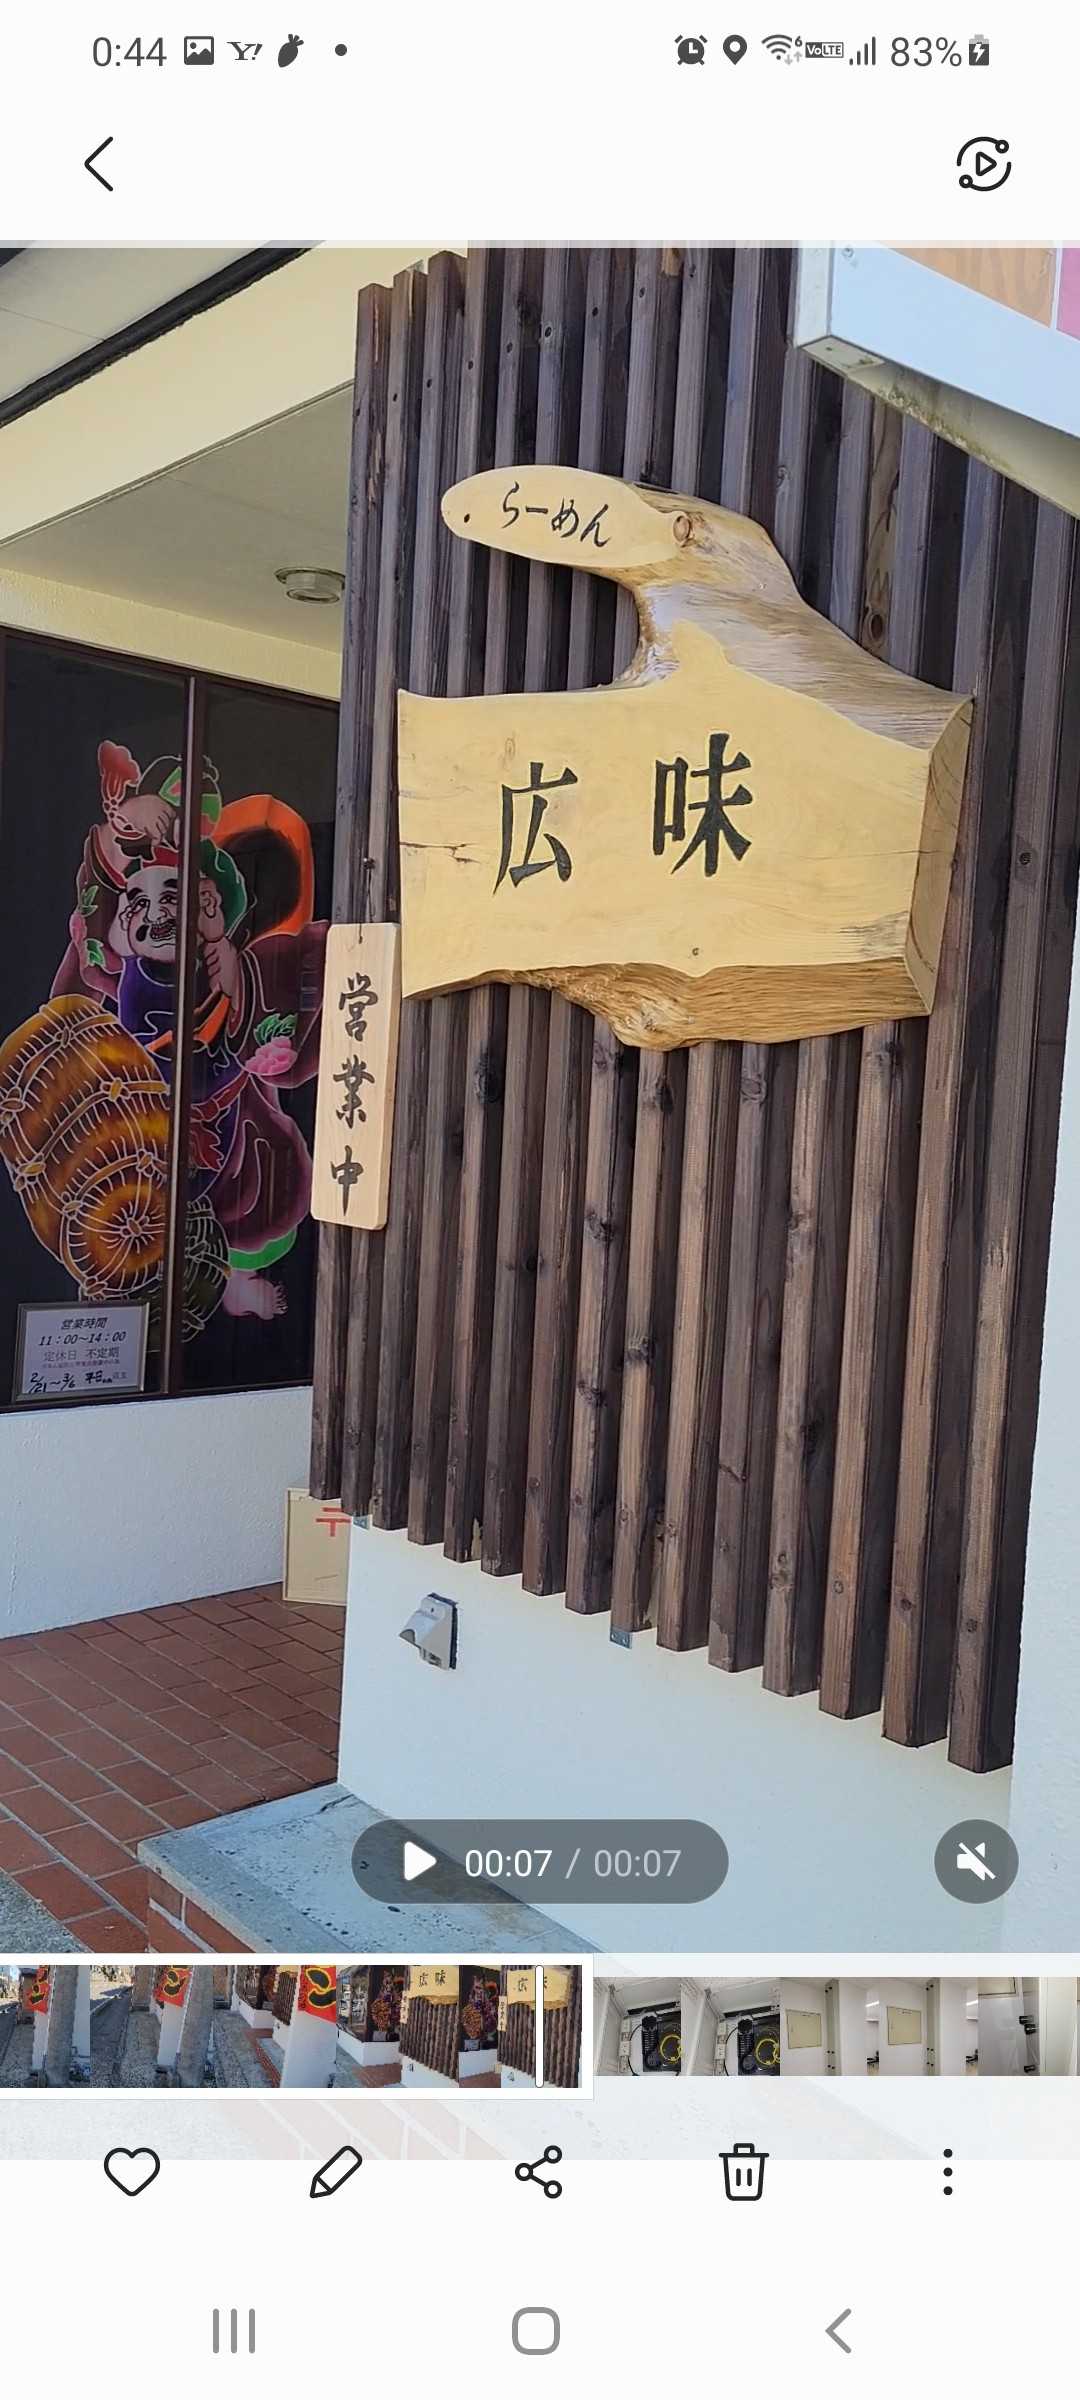 0:44
Y!
6
VoLTE
83%
らーめん
広 味
営業中
営業時間
11：00～14：00
定休日 不定期
2/21～3/6 平日
〒
00:07 / 00:07
広 味